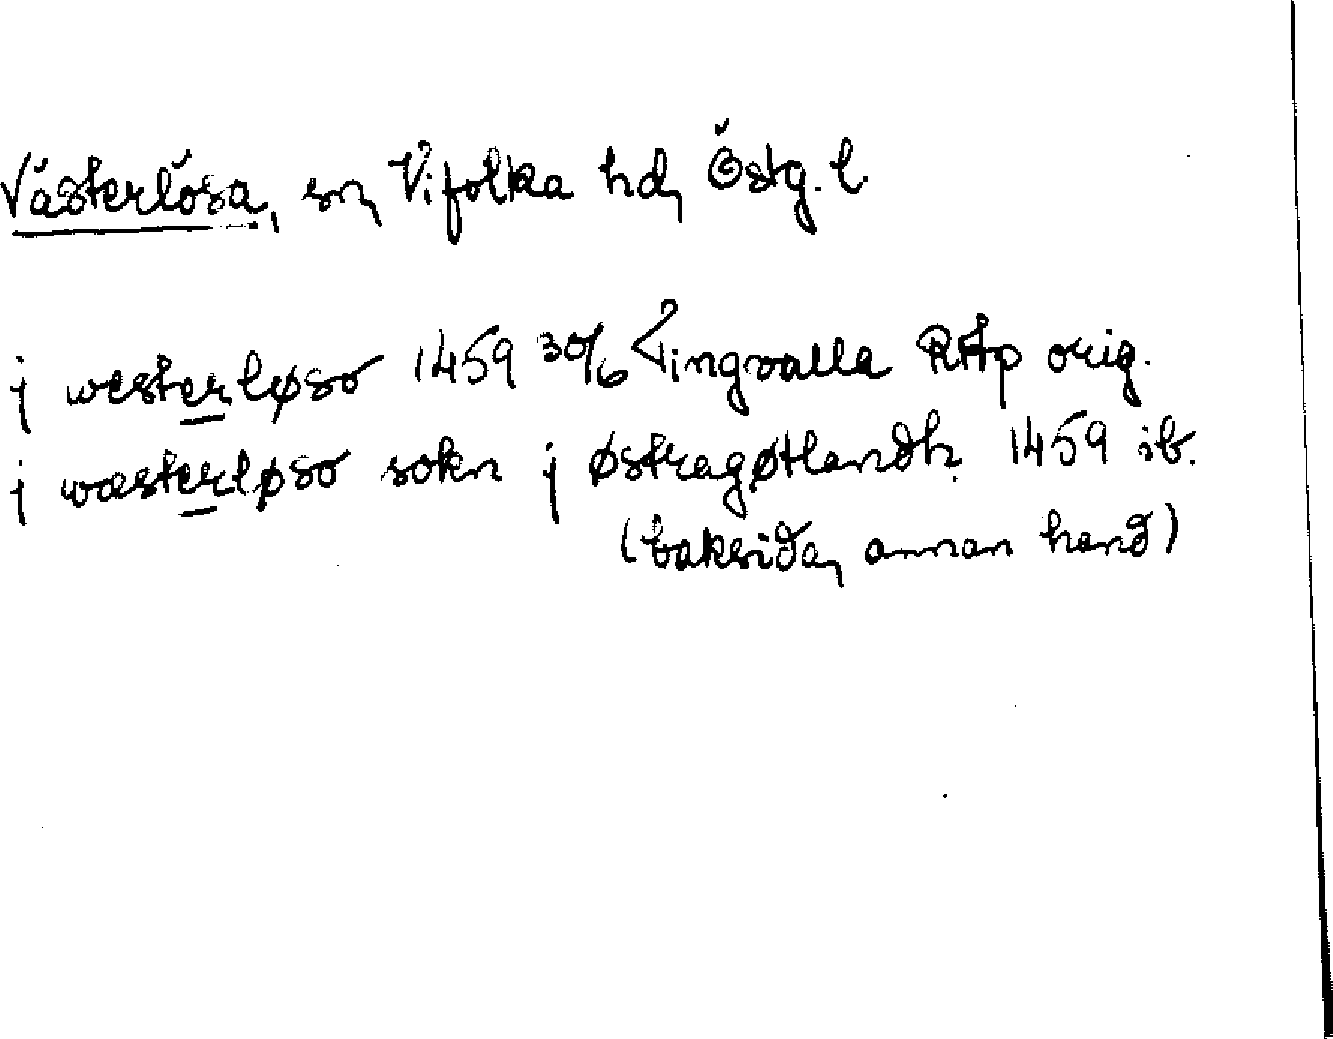 Västerlösa, sn, Vifolka hd, Östg. l.
j westerløso 1459 30/6 Lingvalla RAp orig.
j wæsterløso sokn j østragøtlandh. 1459 ib.
(baksida, annan hand)